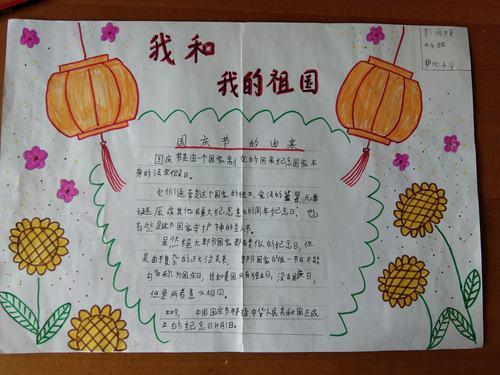 我和
我的祖国
二4班
中心小学
国庆节的由来
国庆节是由一个国家制定的用来纪念国家本
身的法定假日。
它们通常是这个国家的独立、宪法的签署、元首
诞辰或其他有重大纪念意义的周年纪念日；也
有些是这个国家守护神的圣人节。
虽然绝大部份国家都有类似的纪念日，但
是由于复杂的政治关系，部份国家的这一节日不能
称为国庆日，比如美国只有独立日，没有国庆日，
但是两者意义相同。
如今，中国国庆节特指中华人民共和国正式成
立的纪念日10月1日。